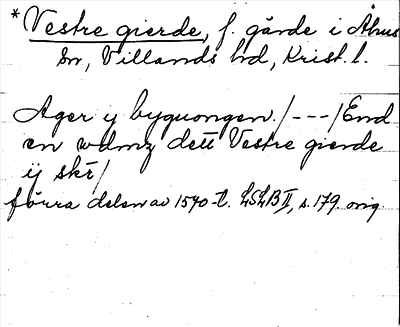 *Vestre gierde, f. gärde i Åhus
sn, Villands hd, Krist. l.
Ager y byguongen /---/ End
en wdmz dett Vestre gierde
ij skt/
förra delen av 1570-t. LSLB II, s. 179. orig.